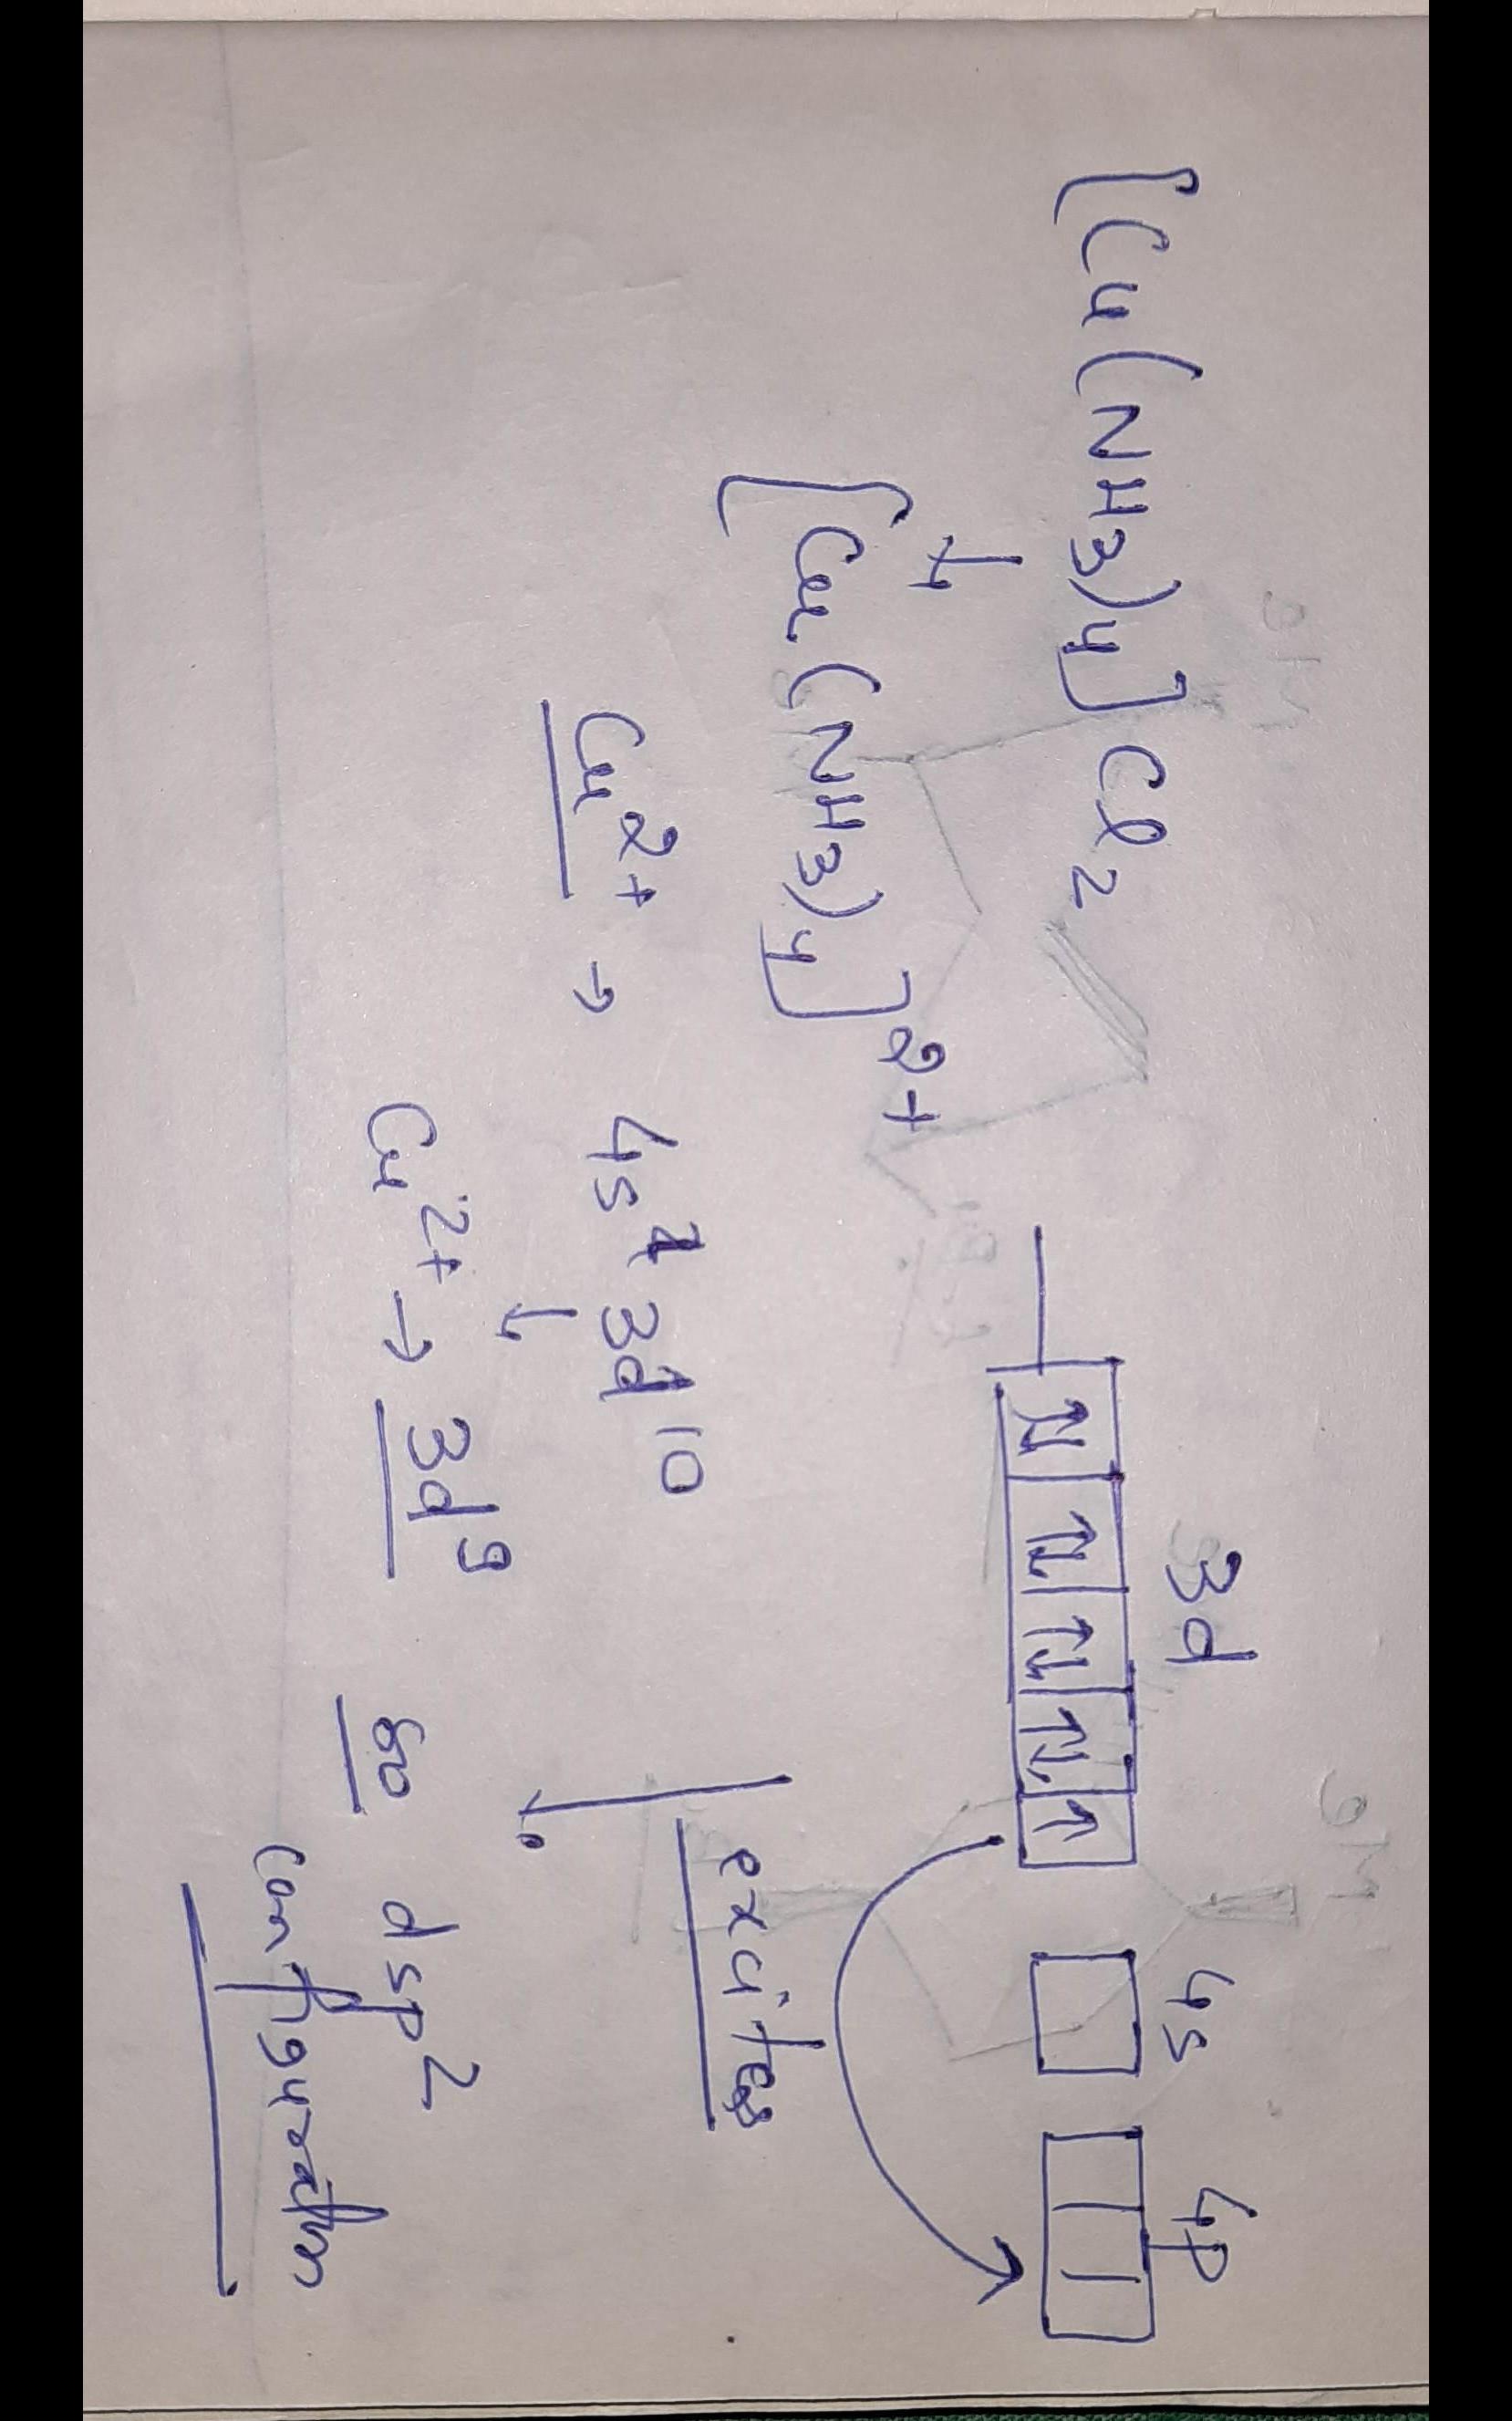 [Cu(NH3)4]Cl2
↓
[Cu(NH3)4]2+
Cu2+ → 4s1 3d10
↓
Cu2+ → 3d9
3d 4s 4p
↑↓ ↑↓ ↑↓ ↑↓ ↑
excites
↓
so dsp2
configuration